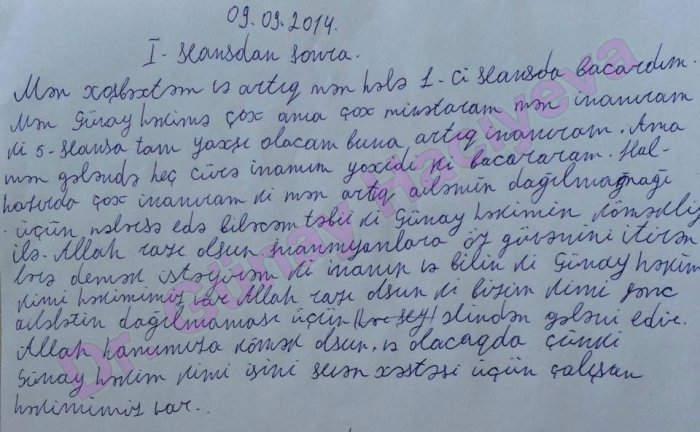 09.09.2014.
I - seansdan sonra.
Mən xoşbəxtəm və artıq mən hələ 1-ci seansda bacardım.
Mən Günay həkimə çox ama çox minətaram mən inanıram
ki 5-seansa tam yaxşı olacam buna, artıq inanıram. Ama
mən gələndə heç cürə inamım yoxidi ki bacararam. Hal-
hazırda çox inanıram ki mən artıq ailəmin dağılmağnağı
üçün nələrsə edə biləcəm təbii ki Günay həkimin köməkliyi
ilə. Allah razı olsun inanmıyanlara öz güvənini itirən
lərə demək istəyirəm ki inanın və bilin ki Günay həkim
kimi həkimimiz var Allah razı olsun ki bizim kimi gənc
ailələtin dağılmaması üçün (hər şey) əlindən gələni edir.
Allah hamımıza kömək olsun, və olacaqda çünki
Günay həkim kimi işini sevən xəstəsi üçün çalışan
həkimimiz var..
Dr. Günay Hacıyeva